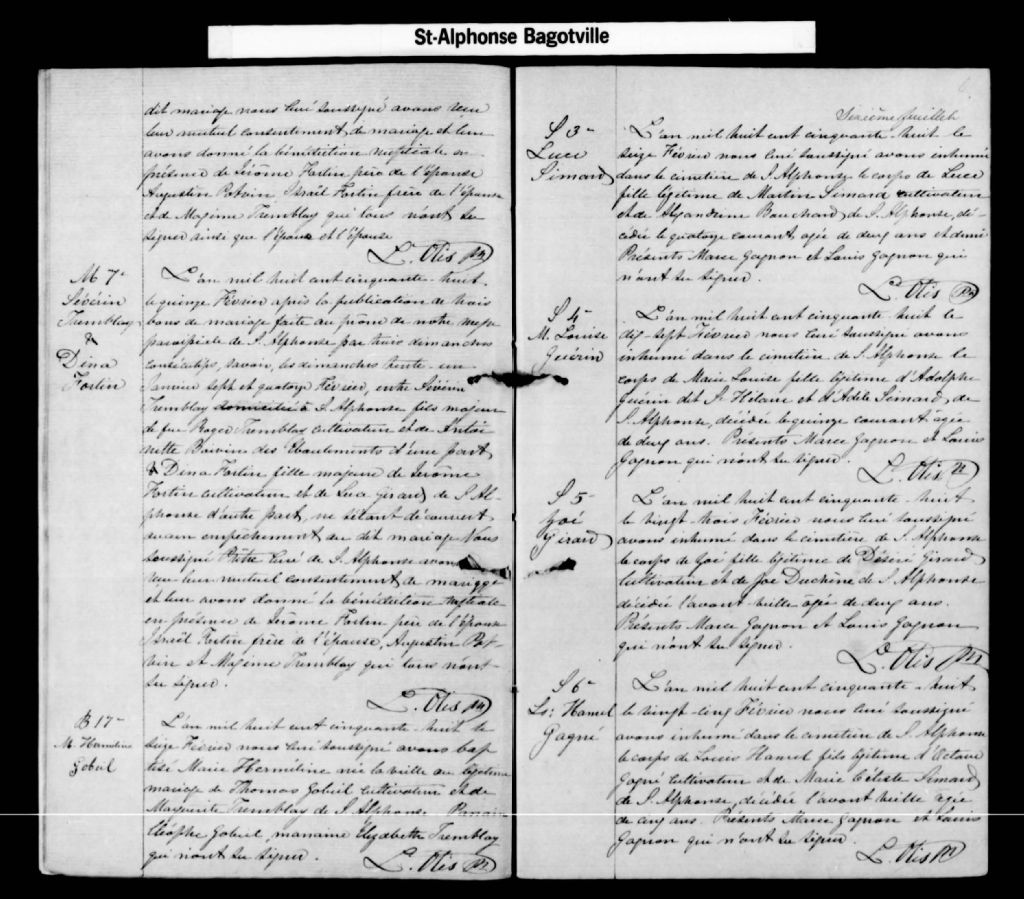 St-Alphonse Bagotville
dit mariage nous Curé soussigné avons reçu
leur mutuel consentement de mariage et leur
avons donné la bénédiction nuptiale en
présence de Jérôme Fortin père de l'épouse
Augustin Potvin Israël Fortin frère de l'épouse
et de Maxime Tremblay qui tous n'ont su
signer ainsi que l'époux et l'épouse
L. Otis Ptr
M 7e
Sévérin
Tremblay
&
Dina
Fortin
L'an mil huit cent cinquante-huit
le quinze Février après la publication de trois
bans de mariage faite au prône de notre messe
paroissiale de S. Alphonse par trois dimanches
consécutifs, savoir, les dimanches trente-un
Janvier sept et quatorze Février, entre Sévérin
Tremblay domicilié à S. Alphonse fils majeur
de feu Roger Tremblay cultivateur et de Antoi
nette Boivin des Eboulements d'une part
& Dina Fortin fille majeure de Jérôme
Fortin cultivateur et de Luce Girard de S. Al-
phonse d'autre part, ne s'étant découvert
aucun empêchement au dit mariage Nous
soussigné Prêtre Curé de S. Alphonse avons
reçu leur mutuel consentement de mariage
et leur avons donné la bénédiction nuptiale
en présence de Jérôme Fortin père de l'épouse
Israël Fortin frère de l'épouse, Augustin Pot-
vin et Maxime Tremblay qui tous n'ont
su signer.
L. Otis Ptr
B 17e
M. Herméline
Gobeil
L'an mil huit cent cinquante-huit le
seize Février nous Curé soussigné avons bap
tisé Marie Herméline née la veille du légitime
mariage de Thomas Gobeil cultivateur et de
Marguerite Tremblay de S. Alphonse Parrain
Cléophe Gobeil marraine Elizabeth Tremblay
qui n'ont su signer.
L. Otis Ptr
Sixième feuillet
S 3e
Luce
Simard
L'an mil huit cent cinquante-huit le
seize Février nous Curé soussigné avons inhumé
dans le cimetière de S. Alphonse le corps de Luce
fille légitime de Martin Simard cultivateur
et de Alexandrine Bouchard de S. Alphonse, dé-
cédée le quatorze courant agée de deux ans et demi
Présents Marce Gagnon et Louis Gagnon qui
n'ont su signer.
L. Otis Ptr
S 4e
M. Louise
Guérin
L'an mil huit cent cinquante-huit le
dix-sept Février nous Curé soussigné avons
inhumé dans le cimetière de S. Alphonse le
corps de Marie Louise fille légitime d'Adolphe
Guérin dit St Hilaire et d'Adèle Simard, de
S. Alphonse, décédée le quinze courant âgée
de deux ans. Présents Marce Gagnon et Louis
Gagnon qui n'ont su signer.
L. Otis Ptr
S 5e
Zoé
Girard
L'an mil huit cent cinquante-huit
le vingt-trois Février nous Curé soussigné
avons inhumé dans le cimetière de S. Alphonse
le corps de Zoé fille légitime de Désiré Girard
Cultivateur et de Zoé Duchêne de S. Alphonse
décédée l'avant-veille âgée de deux ans.
Présents Marce Gagnon et Louis Gagnon
qui n'ont su signer.
L. Otis Ptr
S 6e
Ls: Hamel
Gagné
L'an mil huit cent cinquante-huit
le vingt-cinq Février nous Curé soussigné
avons inhumé dans le cimetière de S. Alphonse
le corps de Louis Hamel fils légitime d'Octave
Gagné Cultivateur et de Marie Céleste Simard
de S. Alphonse, décédé l'avant veille âgée
de cinq ans. Présents Marce Gagnon et Louis
Gagnon qui n'ont su signer.
L. Otis Ptr